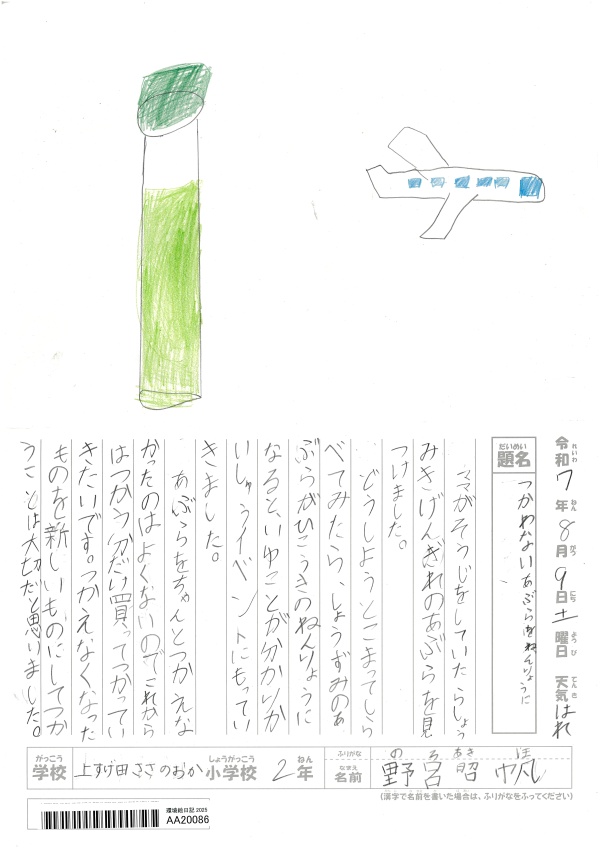 令和7年8月9日土曜日 天気はれ
れいわ ねん がつ にち ようび てんき
だいめい
題名
つかわないあぶらをねんりょうに
ママがそうじをしていたらしょう
みきげんぎれのあぶらを見
つけました。
どうしようとこまってしら
べてみたら、しょうずみのあ
ぶらがひこうきのねんりょうに
なると、いゆことが分かりか
いしゅうイベントにもってい
きました。
あぶらをちゃんとつかえな
かったのはよくないのでこれから
はつかう分だけ買ってつかってい
きたいです。つかえなくなった
ものを新しいものにしてつか
うことは大切だと思いました。
がっこう しょうがっこう ねん
学校 上すげ田ささのおか小学校 2年
ふりがな のろ あき ほ
なまえ
名前 野呂 昭帆
(漢字で名前を書いた場合は、ふりがなをふってください)
環境絵日記 2025
AA20086